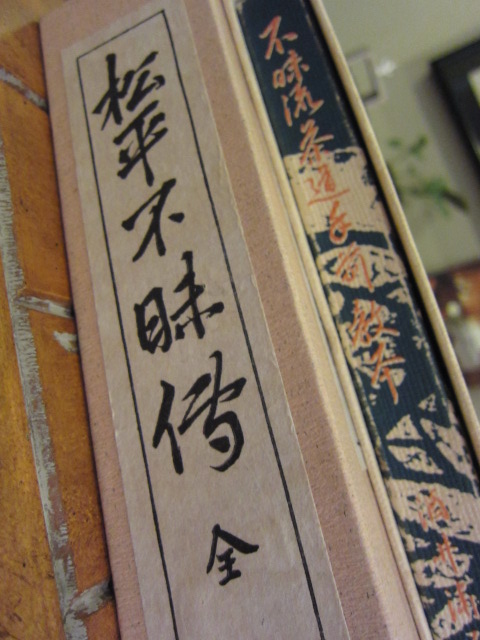 松平不昧傳 全
不昧流茶道手前教本